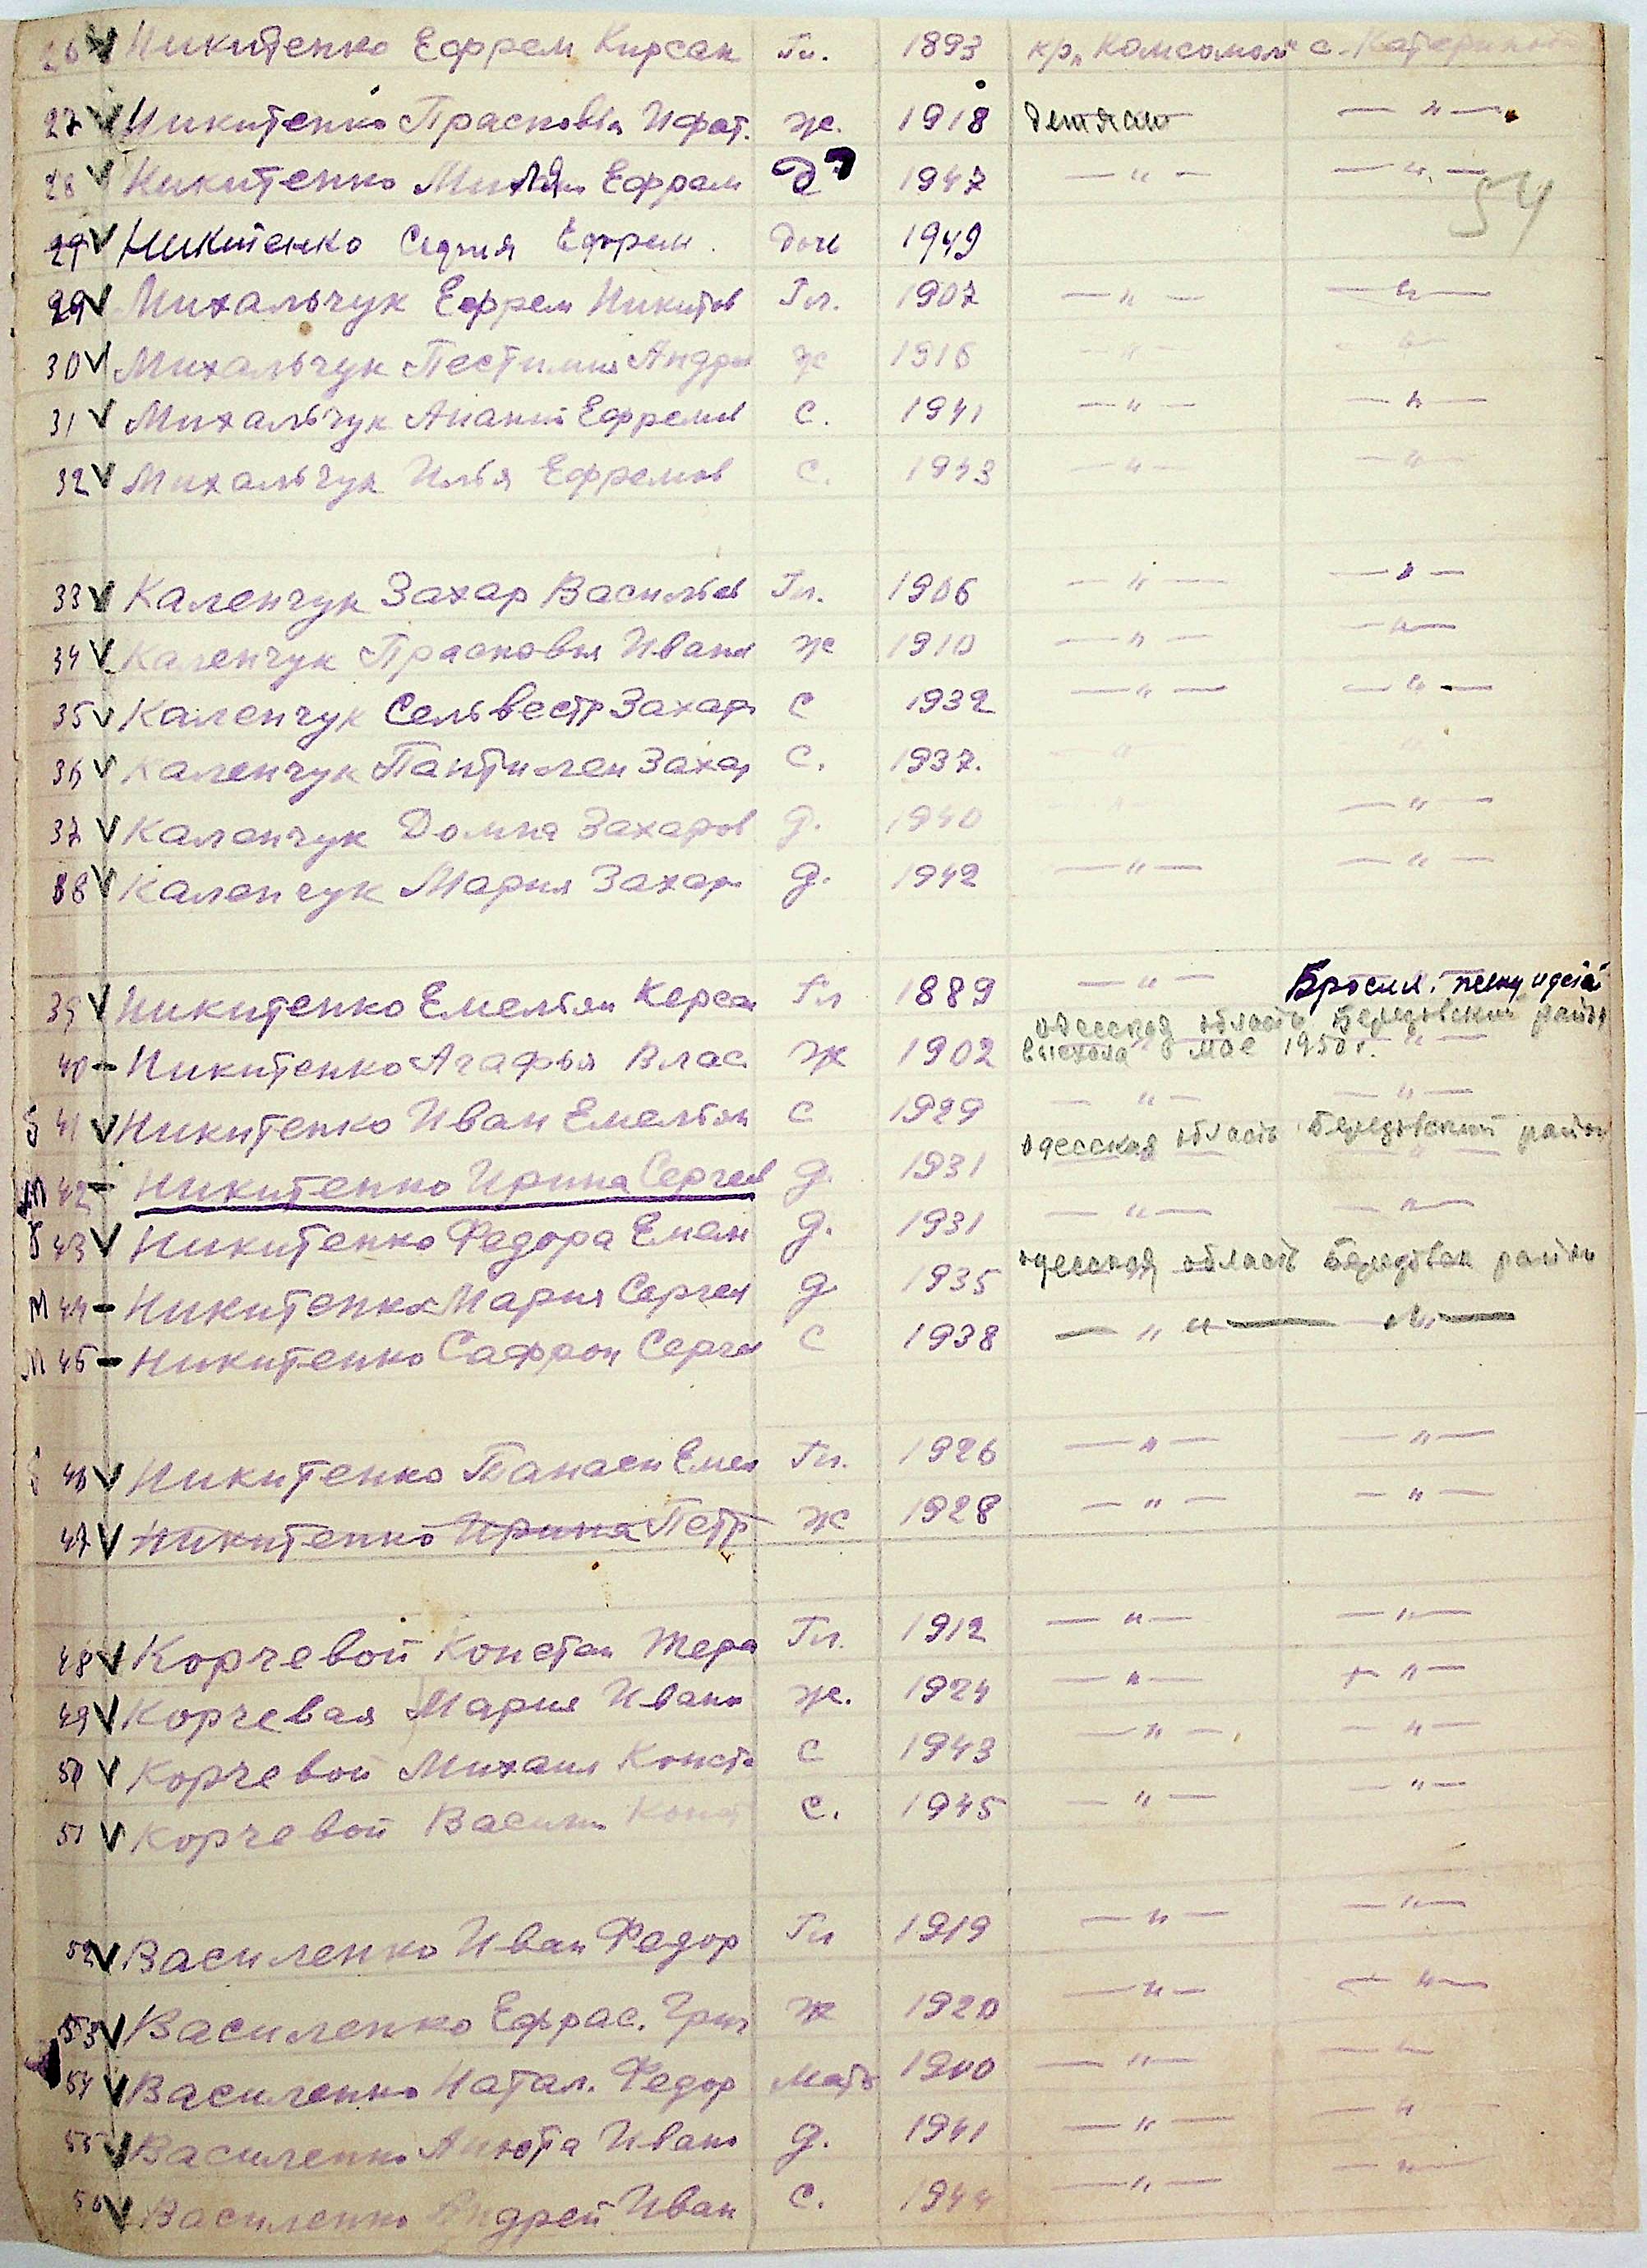 26 V Никитенко Ефрем Кирсан Гл. 1893 кр. "Комсомол" с. Катериновка
27 V Никитенко Прасковья Ифат. ж. 1918 — " —
28 V Никитенко Ефрем 1947 — " — — " —
54
29 V Никитенко Ефрем. дочь 1949
29 V Михальчук Ефрем Никитов Гл. 1907 — " — — " —
30 V Михальчук Пестимия Андре ж 1916 — " — — " —
31 V Михальчук Ананий Ефремов С. 1941 — " — — " —
32 V Михальчук Илья Ефремов С. 1943 — " — — " —
33 V Каленчук Захар Васильев Гл. 1906 — " — — " —
34 V Каленчук Прасковья Иван ж 1910 — " — — " —
35 V Каленчук Сельвестр Захар С 1932 — " — — " —
36 V Каленчук Пантилей Захар С. 1937. — " — — " —
37 V Каленчук Домна Захаров д. 1940 — " —
38 V Каленчук Мария Захар д. 1942 — " — — " —
39 V Никитенко Емельян Керсан Гл 1889 — " — Бросил.
Одесская область Березовский район
40 - Никитенко Агафья Влас. Ж 1902 выехала в мае 1950 г. — " —
41 V Никитенко Иван Емельян С 1929 — " — — " —
Одесская область Березовский район
М 42 - Никитенко Ирина Сергеев д. 1931 — " —
43 V Никитенко Федора Емел д. 1931 — " — — " —
Одесская область Березовск район
М 44 - Никитенко Мария Сергеев д 1935
М 45 - Никитенко Сафрон Сергеев С 1938 — " — — " —
46 V Никитенко Панасий Емел Гл. 1926 — " — — " —
47 V Никитенко Ирина Петр ж 1928 — " — — " —
48 V Корчевой Констан Гл. 1912 — " — — " —
49 V Корчевая Мария Ивано ж. 1924 — " — — " —
50 V Корчевой Михаил Конста С 1943 — " — — " —
51 V Корчевой Васили Конст С. 1945 — " — — " —
52 V Василенко Иван Федор Гл 1919 — " — — " —
53 V Василенко Ефрас. Григ Ж 1920 — " — — " —
54 V Василенко Натал. Федор мать 1900 — " — — " —
55 V Василенко Анюта Ивано д. 1941 — " — — " —
56 V Василенко Андрей Иван С. 1944 — " — — " —